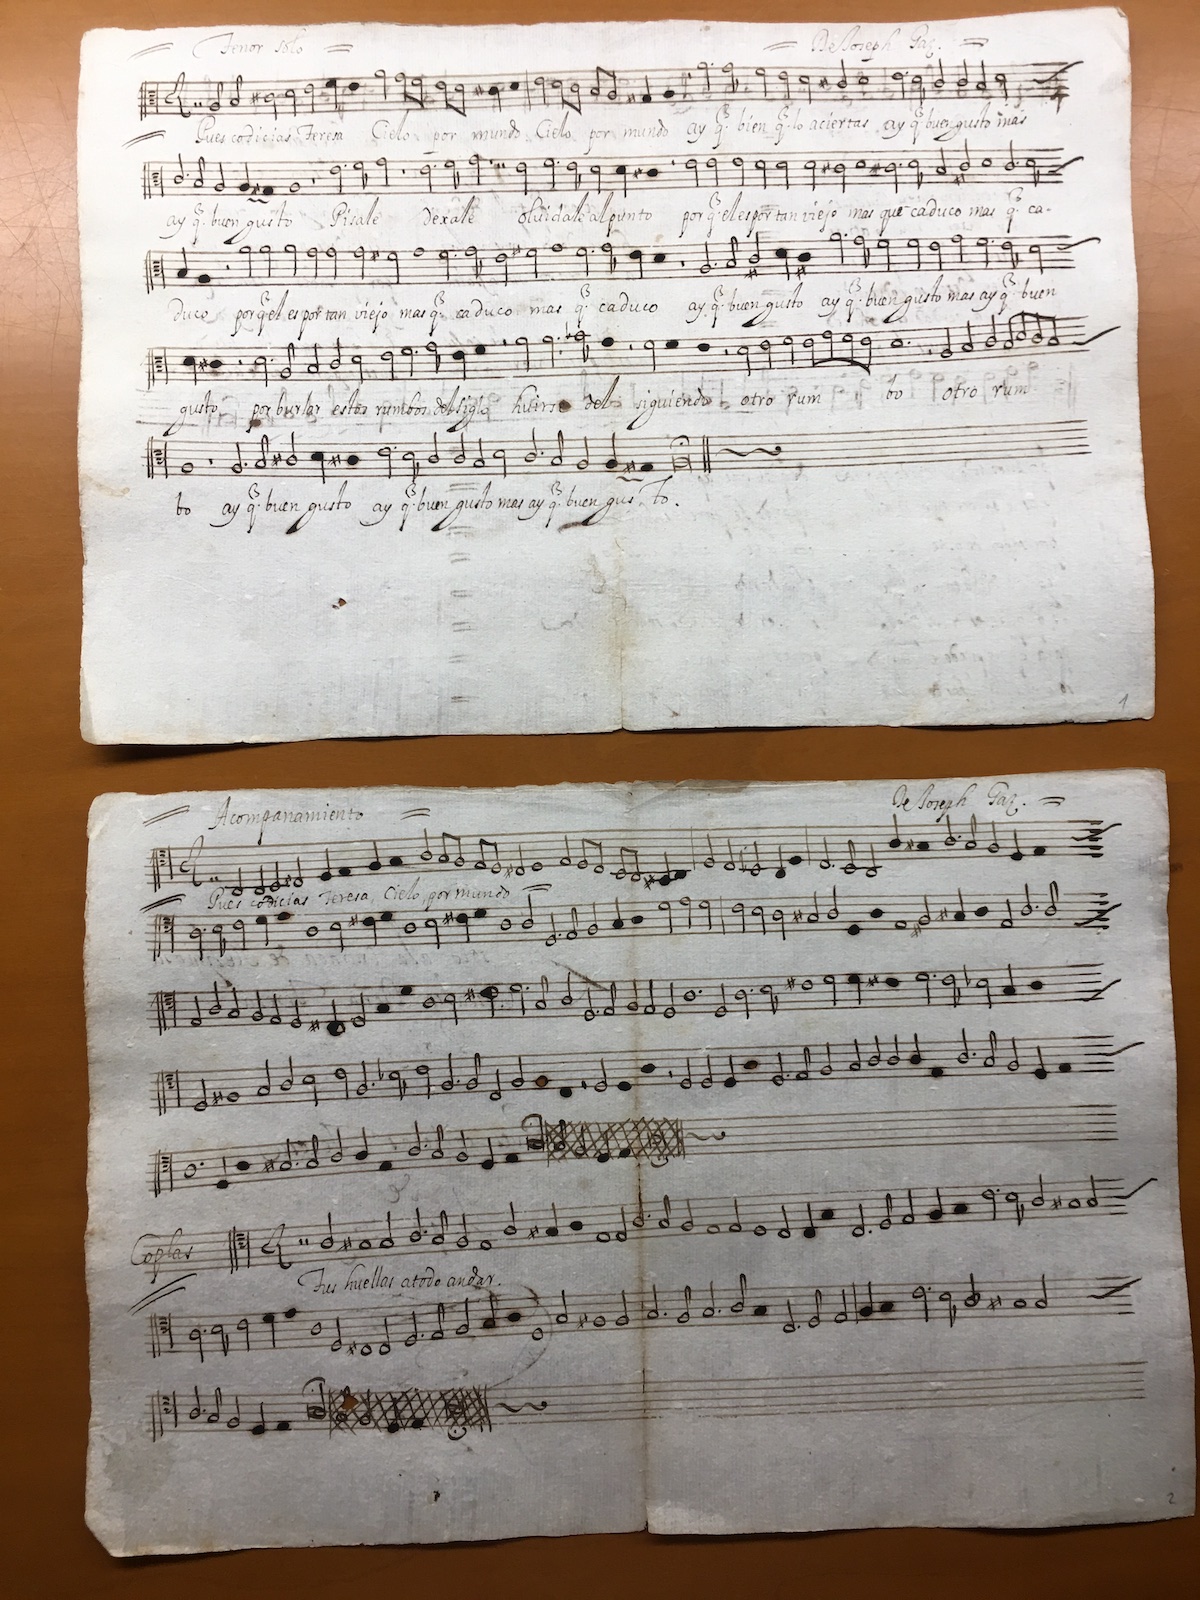 Tenor solo De Joseph Gaz.
Pues codicias Teresa Cielo por mundo Cielo por mundo ay q. bien q. lo aciertas ay q. buen gusto mas
ay q. buen gusto Pisale dexale oluidale al punto por q. el es por tan viejo mas que caduco mas q. ca-
duco porq. el es por tan viejo mas q. caduco mas q. caduco ay q. buen gusto ay q. buen gusto mas ay q. buen
gusto por burlar estos rumbos del siglo huirse del siguiendo otro rum bo otro rum
bo ay q. buen gusto ay q. buen gusto mas ay q. buen gus to.
1
Acompanamiento De Joseph Gaz.
Pues codicias Teresa, Cielo, por mundo
Coplas
Tus huellas a todo andar.
2